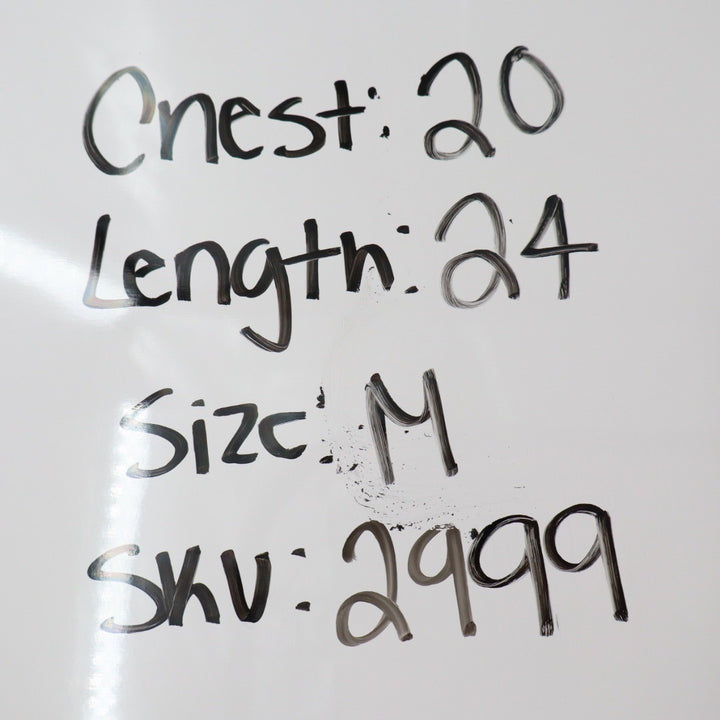 Chest: 20
Length: 24
Size: M
SKU: 2999